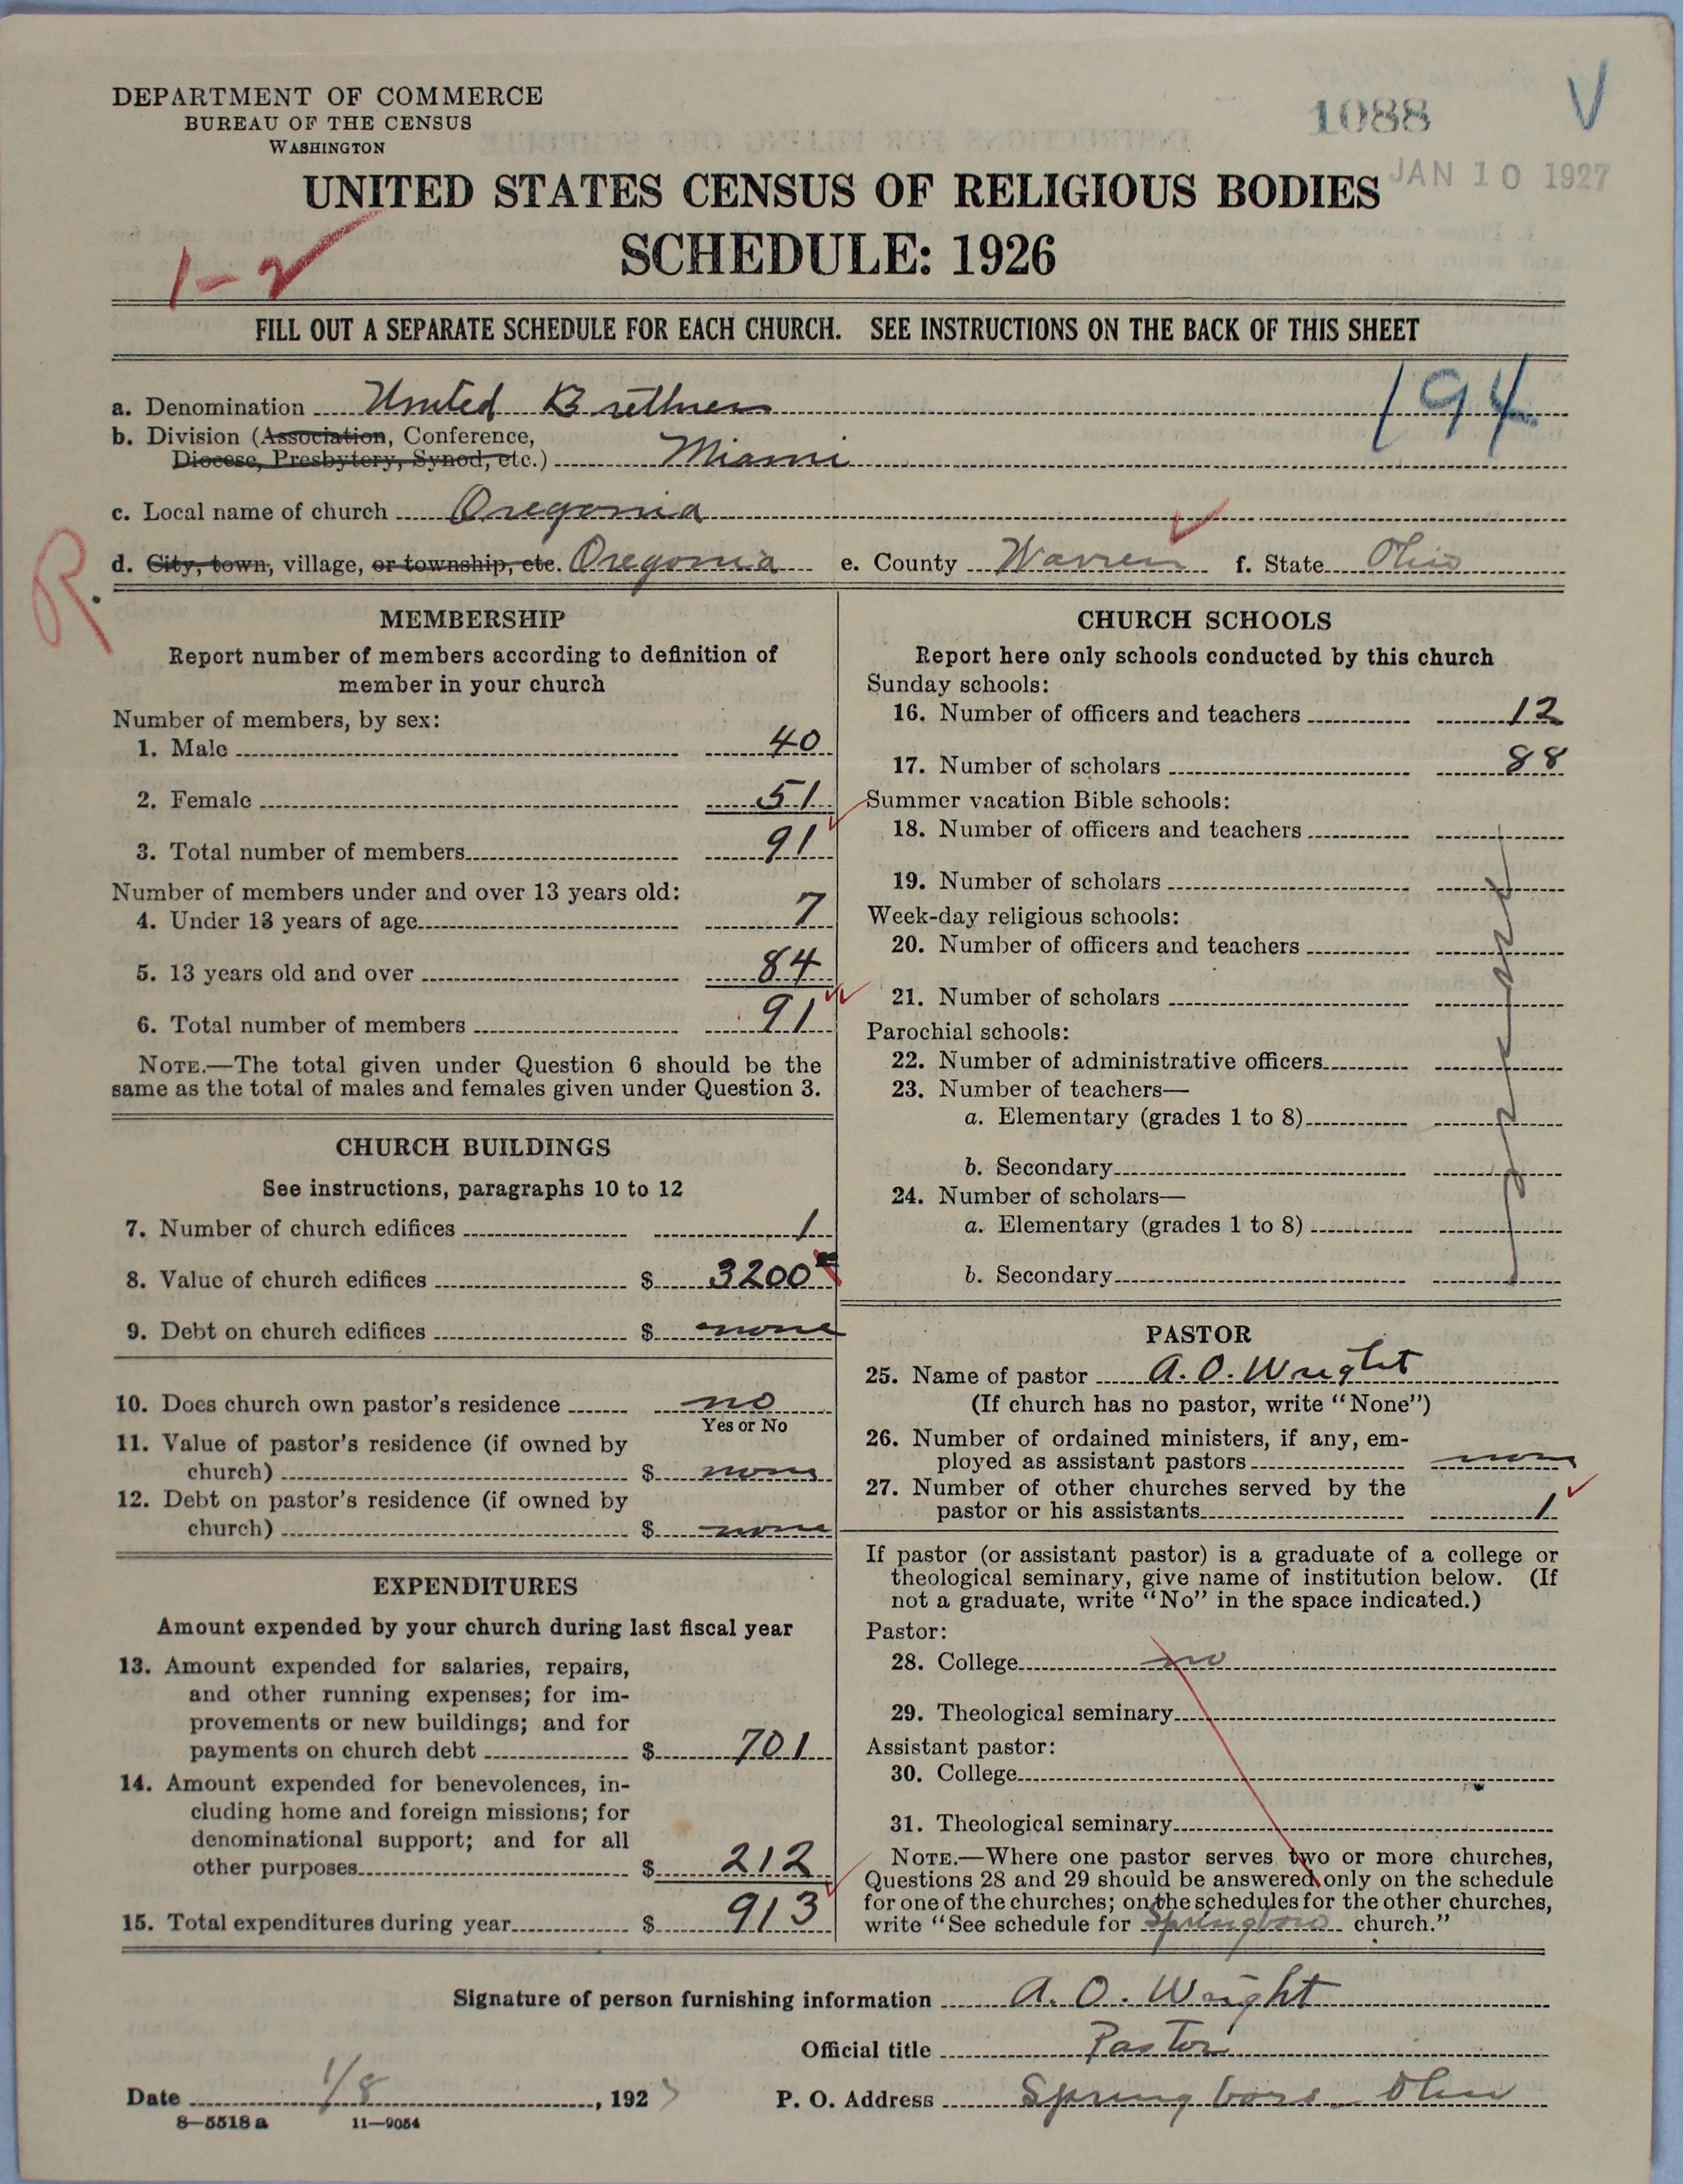 DEPARTMENT OF COMMERCE
BUREAU OF THE CENSUS
WASHINGTON
1088
V
JAN 10 1927
UNITED STATES CENSUS OF RELIGIOUS BODIES
SCHEDULE: 1926
1-2
FILL OUT A SEPARATE SCHEDULE FOR EACH CHURCH. SEE INSTRUCTIONS ON THE BACK OF THIS SHEET
194
a. Denomination United Brethren
b. Division (Association, Conference,
Diocese, Presbytery, Synod, etc.) Miami
c. Local name of church Oregonia
R.
d. City, town, village, or township, etc. Oregonia e. County Warren f. State Ohio
MEMBERSHIP
Report number of members according to definition of
member in your church
Number of members, by sex:
1. Male 40
2. Female 51
3. Total number of members 91
Number of members under and over 13 years old:
4. Under 13 years of age 7
5. 13 years old and over 84
6. Total number of members 91
NOTE.—The total given under Question 6 should be the
same as the total of males and females given under Question 3.
CHURCH BUILDINGS
See instructions, paragraphs 10 to 12
7. Number of church edifices 1
8. Value of church edifices $ 3200
9. Debt on church edifices $ none
10. Does church own pastor's residence no
Yes or No
11. Value of pastor's residence (if owned by
church) $ none
12. Debt on pastor's residence (if owned by
church) $ none
EXPENDITURES
Amount expended by your church during last fiscal year
13. Amount expended for salaries, repairs,
and other running expenses; for im-
provements or new buildings; and for
payments on church debt $ 701
14. Amount expended for benevolences, in-
cluding home and foreign missions; for
denominational support; and for all
other purposes $ 212
15. Total expenditures during year $ 913
CHURCH SCHOOLS
Report here only schools conducted by this church
Sunday schools:
16. Number of officers and teachers 12
17. Number of scholars 88
Summer vacation Bible schools:
18. Number of officers and teachers
19. Number of scholars
Week-day religious schools:
20. Number of officers and teachers
21. Number of scholars
Parochial schools:
22. Number of administrative officers
23. Number of teachers—
a. Elementary (grades 1 to 8)
b. Secondary
24. Number of scholars—
a. Elementary (grades 1 to 8)
b. Secondary
PASTOR
25. Name of pastor A. O. Wright
(If church has no pastor, write "None")
26. Number of ordained ministers, if any, em-
ployed as assistant pastors none
27. Number of other churches served by the
pastor or his assistants 1
If pastor (or assistant pastor) is a graduate of a college or
theological seminary, give name of institution below. (If
not a graduate, write "No" in the space indicated.)
Pastor:
28. College no
29. Theological seminary
Assistant pastor:
30. College
31. Theological seminary
NOTE.—Where one pastor serves two or more churches,
Questions 28 and 29 should be answered only on the schedule
for one of the churches; on the schedules for the other churches,
write "See schedule for Springboro church."
Signature of person furnishing information A. O. Wright
Official title Pastor
Date 1/8, 1927 P. O. Address Springboro Ohio
8—5518 a 11—9054